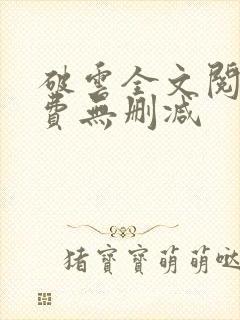 破雲全文閱
費無刪減
猪寶寶萌萌噠